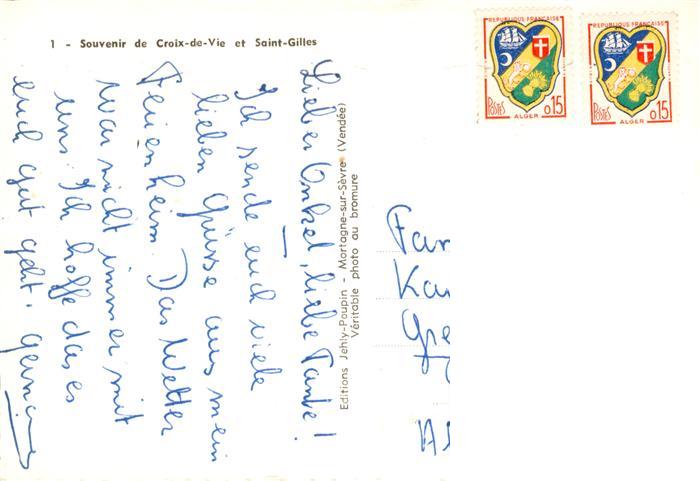 1 - Souvenir de Croix-de-Vie et Saint-Gilles
Lieber Onkel, liebe Tante!
Ich sende euch viele
lieben Grüsse aus mein
Ferienheim. Das Wetter
war nicht immer mit
uns. Ich hoffe das es
euch gut geht.
Editions Jehly-Poupin - Mortagne-sur-Sèvre (Vendée)
Véritable photo au bromure
REPUBLIQUE FRANÇAISE
POSTES
0,15
ALGER
REPUBLIQUE FRANÇAISE
POSTES
0,15
ALGER
Fam
Ka